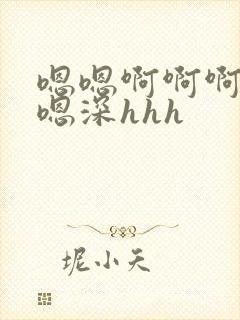 嗯嗯啊啊啊
嗯深hhh
坭小天